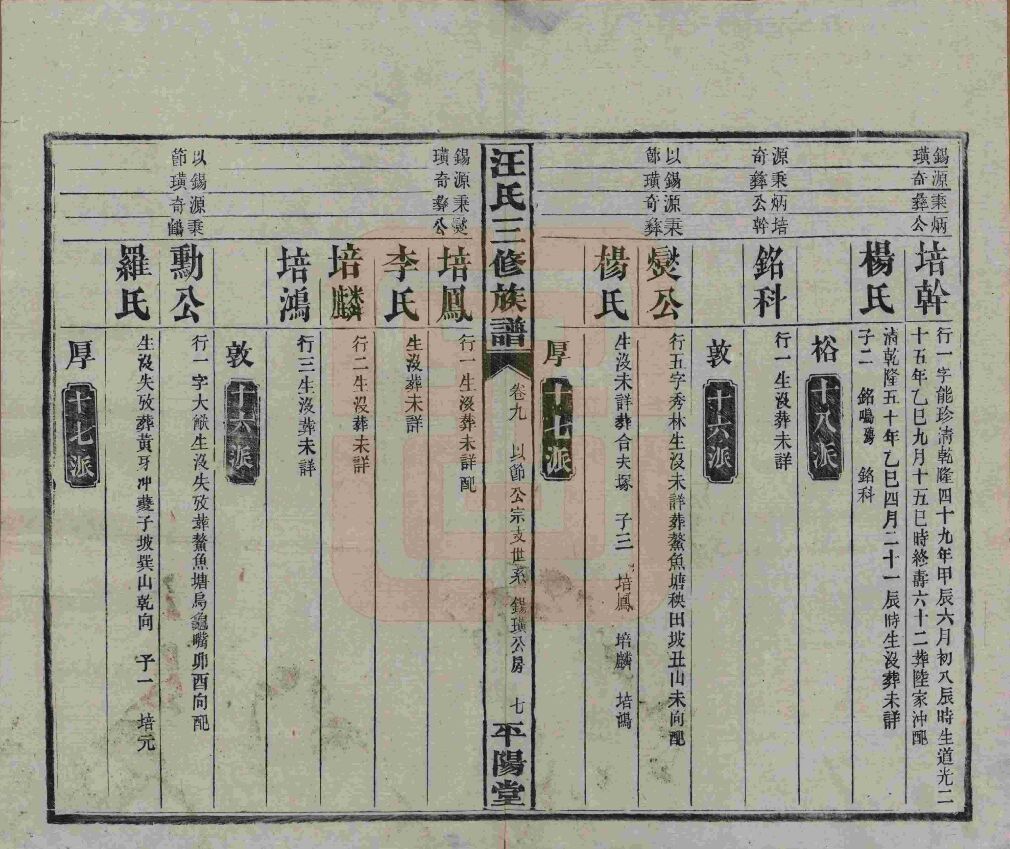 錫源秉炳
璜奇彝公
培幹
行一字能珍清乾隆四十九年甲辰六月初八辰時生道光二
十五年乙巳九月十五巳時終壽六十二葬陸家沖配
楊氏
清乾隆五十年乙巳四月二十一辰時生沒葬未詳
子二 銘鳴 銘科
裕 十八派
源秉炳培
奇彝公幹
銘科
行一生沒葬未詳
敦 十六派
以錫源秉
節璜奇彝
燮公
行五字秀林生沒未詳葬鰲魚塘秧田坡丑山未向配
楊氏
生沒未詳葬合夫塚 子三 培鳳 培麟 培鴻
厚 十七派
汪氏三修族譜
卷九 以節公宗支世系 錫璜公房 七
平陽堂
錫源秉燮
璜奇彝公
培鳳
行一生沒葬未詳配
李氏
生沒葬未詳
培麟
行二生沒葬未詳
培鴻
行三生沒葬未詳
敦 十六派
以錫源秉
節璜奇
勳公
行一字大猷生沒失攷葬鰲魚塘烏龜嘴卯酉向配
羅氏
生沒失攷葬黃牙冲子坡巽山乾向 子一 培元
厚 十七派